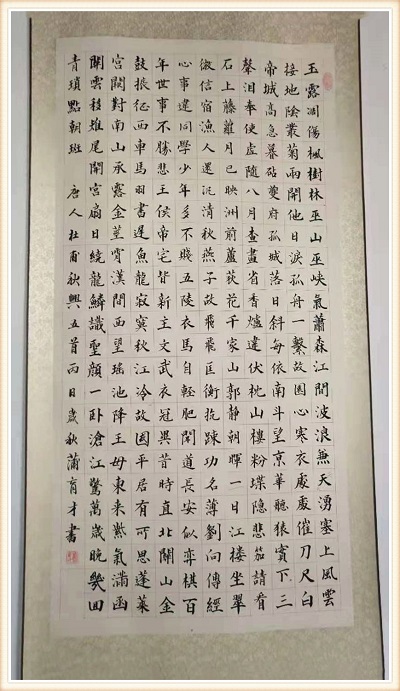 玉露凋傷楓樹林巫山巫峽氣蕭森江間波浪兼天湧塞上風雲
接地陰叢菊兩開他日淚孤舟一繫故園心寒衣處處催刀尺白
帝城高急暮砧夔府孤城落日斜每依南斗望京華聽猿實下三
聲淚奉使虛隨八月查畫省香爐違伏枕山樓粉堞隱悲笳請看
石上藤蘿月已映洲前蘆荻花千家山郭靜朝暉一日江樓坐翠
微信宿漁人還汎清秋燕子故飛飛匡衡抗疏功名薄劉向傳經
心事違同學少年多不賤五陵衣馬自輕肥聞道長安似弈棋百
年世事不勝悲王侯帝宅皆新主文武衣冠異昔時直北關山金
鼓振征西車馬羽書遲魚龍寂寞秋江冷故國平居有可思蓬萊
宮闕對南山承露金莖霄漢間西望瑤池降王母東來紫氣滿函
關雲移雉尾開宮扇日繞龍鱗識聖顏一卧滄江驚歲晚幾回
青瑣點朝班 唐人杜甫秋興五首丙申歲秋蒲育才書